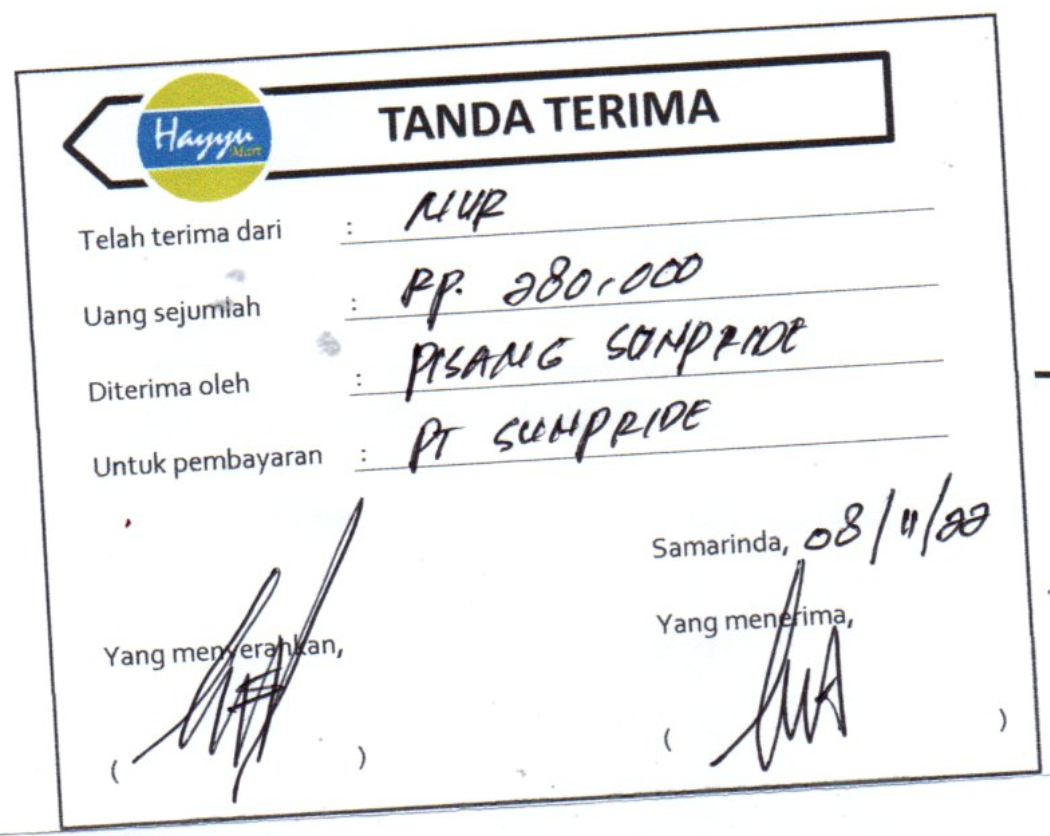 Hayyu Mart
TANDA TERIMA
Telah terima dari : NUR
Uang sejumlah : RP. 280.000
Diterima oleh : PISANG SUNPRIDE
Untuk pembayaran : PT SUNPRIDE
Samarinda, 08/11/22
Yang menyerahkan, Yang menerima,
( ) ( )